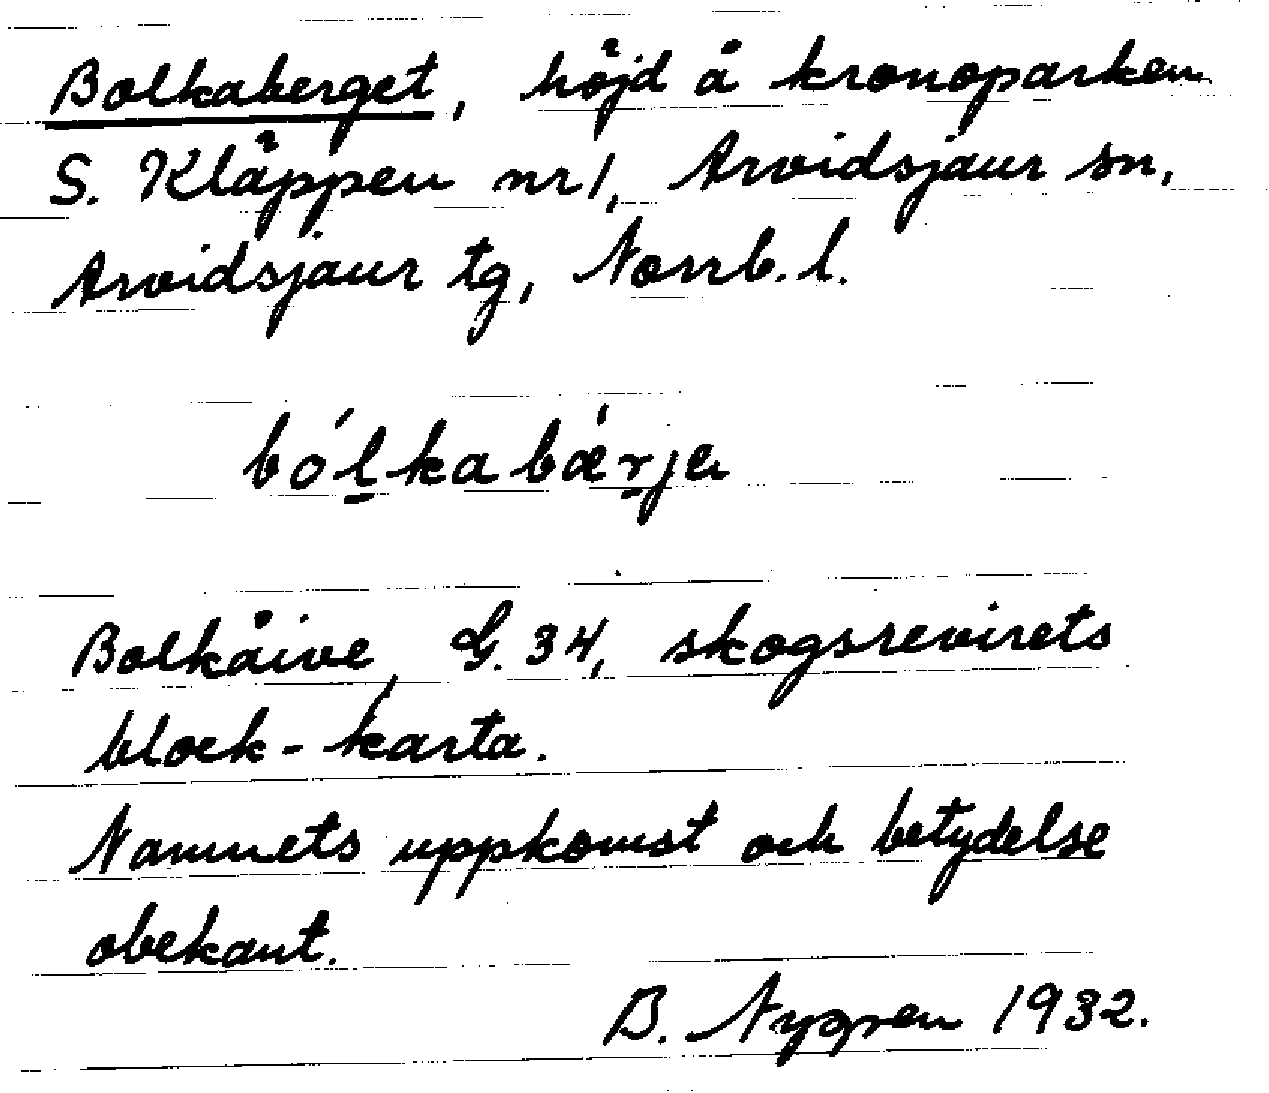 Bolkaberget, höjd å kronoparken
S. Kläppen nr 1, Arvidsjaur sn,
Arvidsjaur tg, Norrb. l.
bólkabærja
Bolkåive, G. 34, skogsrevirets
block-karta.
Namnets uppkomst och betydelse
obekant.
B. Nygren 1932.